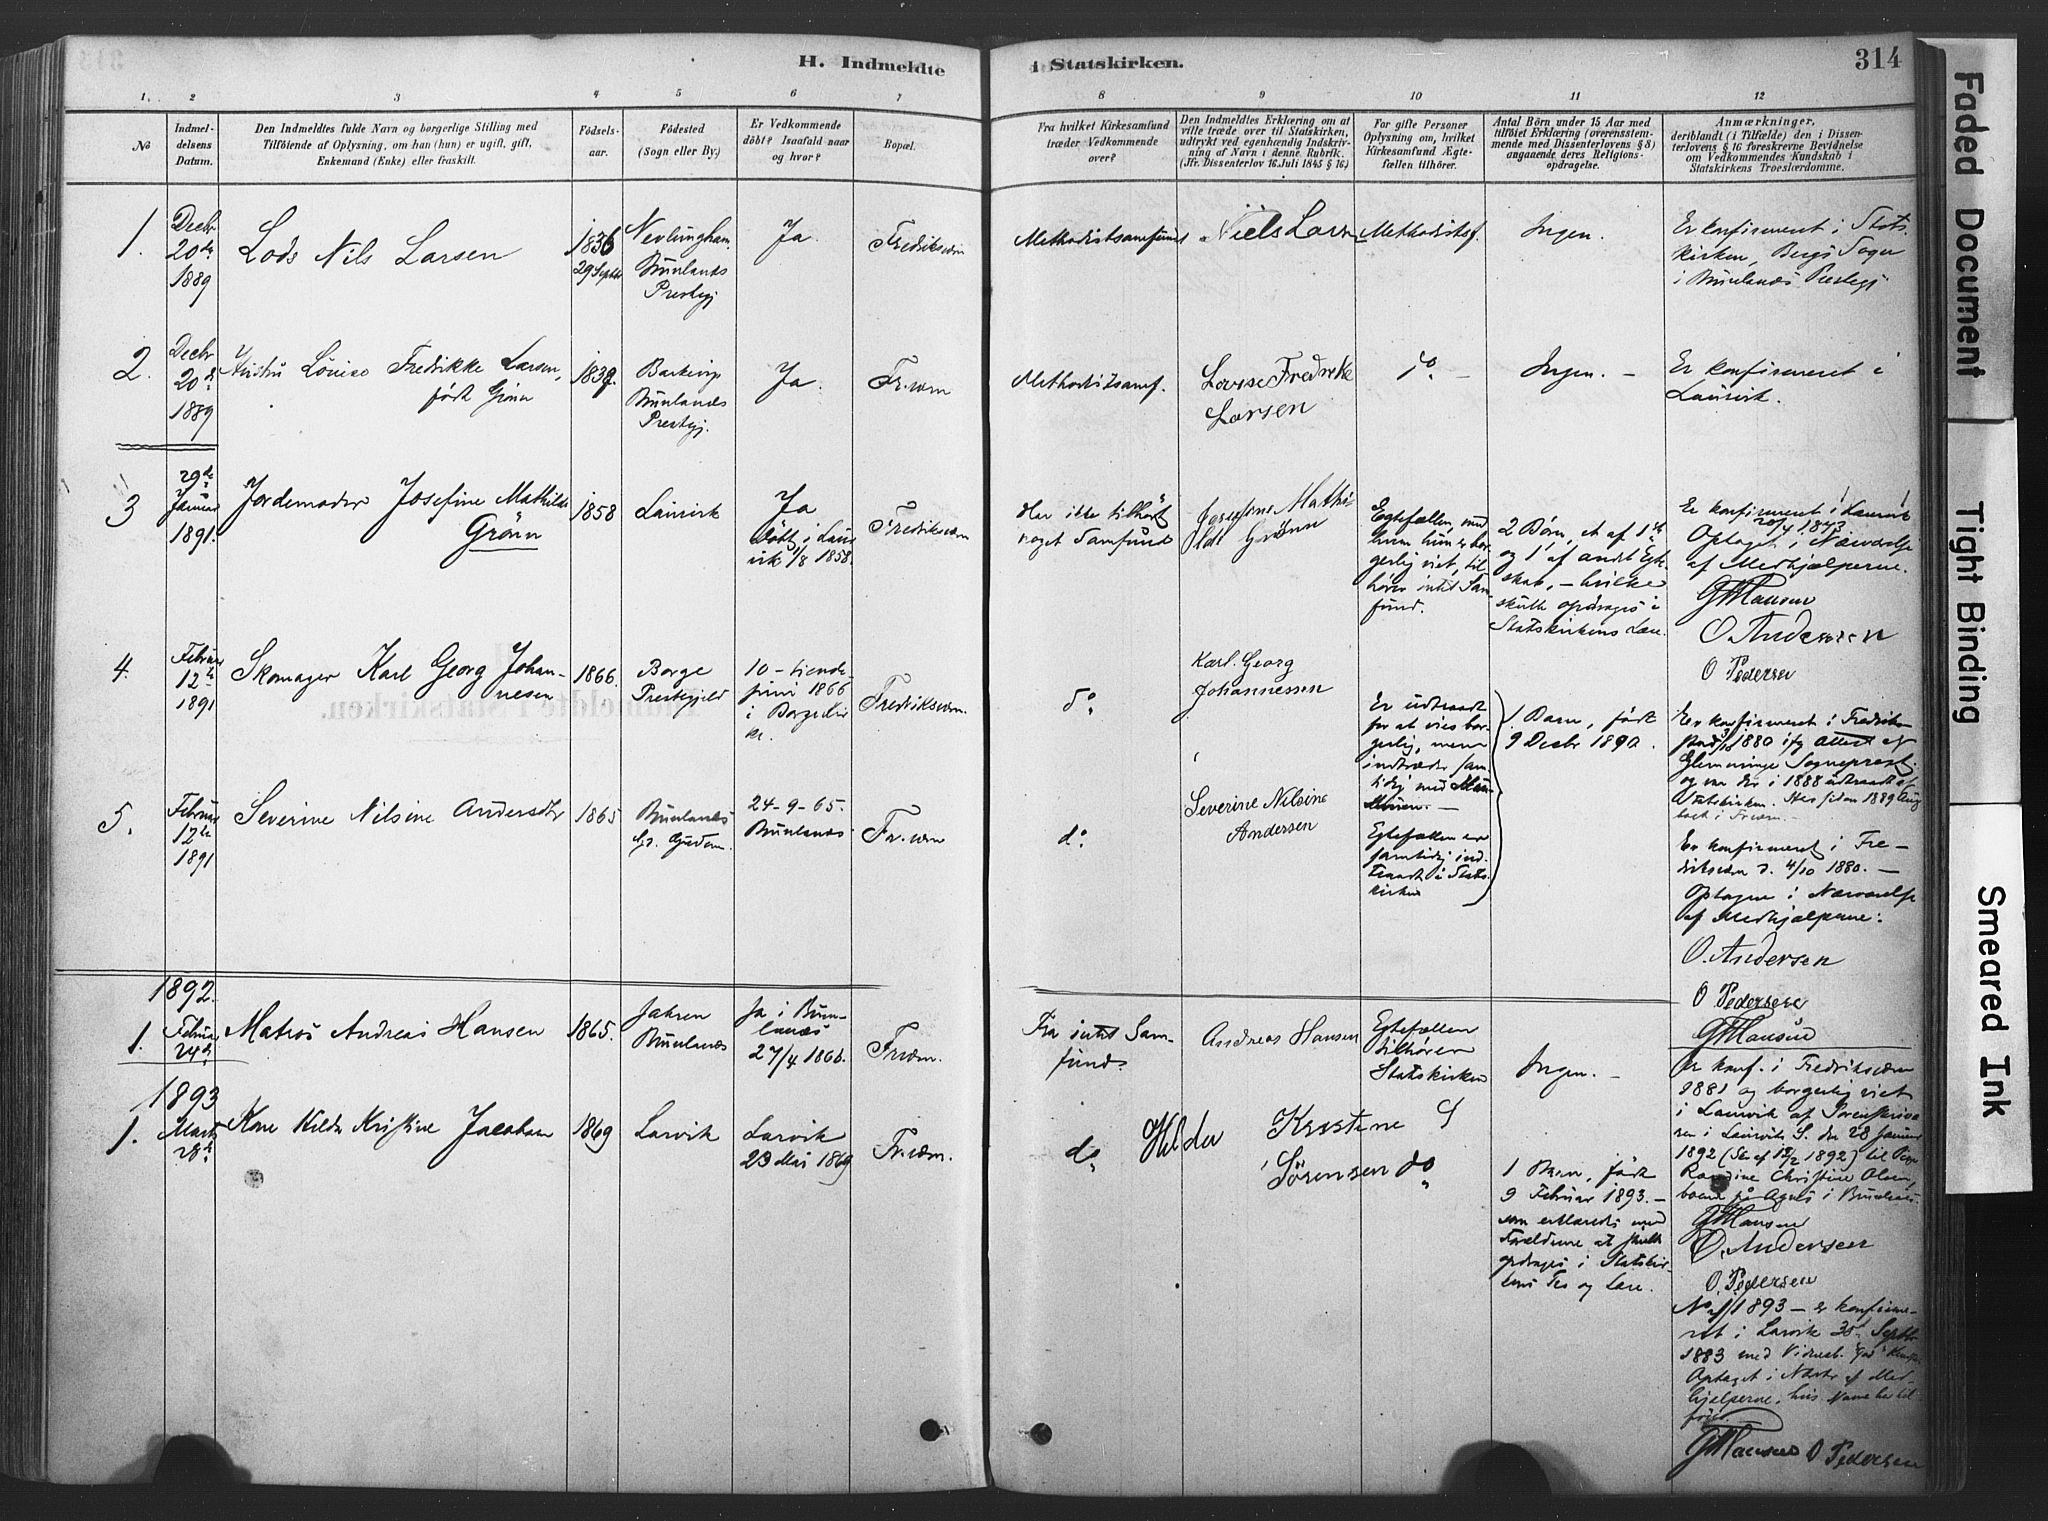 H. Indmeldte
i Statskirken.
314
1.
2
3
4
5
6
7
8
9
10
11
12
No
Indmel-
delsens
Datum.
Den Indmeldtes fulde Navn og borgerlige Stilling med
Tilföiende af Oplysning, om han (hun) er ugift, gift,
Enkemand (Enke) eller fraskilt.
Födsels-
aar.
Födested
(Sogn eller By.)
Er Vedkommende
döbt? Isaafald naar
og hvor?
Bopæl.
Fra hvilket Kirkesamfund
træder Vedkommende
over?
Den Indmeldtes Erklæring om at
ville træde over til Statskirken,
udtrykt ved egenhændig Indskriv-
ning af Navn i denne Rubrik.
(Jfr. Dissenterlov 16 Juli 1845 § 16.)
For gifte Personer
Oplysning om, hvilket
Kirkesamfund Ægte-
fællen tilhörer.
Antal Börn under 15 Aar med
tilföiet Erklæring (overensstem-
mende med Dissenterlovens § 8)
angaaende deres Religions-
opdragelse.
Anmærkninger,
deriblandt (i Tilfælde) den i Dissen-
terlovens § 16 foreskrevne Bevidnelse
om Vedkommendes Kundskab i
Statskirkens Troeslærdomme.
1.
Decbr
20de
1889
Lods Nils Larsen
1836
29 Septbr
Nevlungham.
Brunlanæs
Prestegj
Ja.
Fredriksværn
Methodistsamfund
Niels Larsen
Methodistsf.
Ingen.
Er konfirmeret i Stats
kirken, Bergs Sogn
i Brunlanæs Prestegj
2.
Decbr
20de
1889
Hustru Louise Fredrikke Larsen,
født Grönn
1839.
Barkevig
Brunlanæs
Prestegj.
Ja.
Fr.værn
Methodistsamf.
Lovise Fredrikke
Larsen
do
Ingen.
Er konfirmeret i
Laurvik.
3
29de
Januar
1891.
Jordemoder Josefine Mathilde
Grönn
1858
Laurvik
Ja
Döbt i Laur
vik 1/8 1858.
Fredriksværn
Har ikke tilhört
noget Samfund
Josefine Mathi
lde Grönn
Egtefællen, med
hvem hun er bor
gerlig viet, til-
hører intet Sam-
fund.
2 Börn, et af 1ste
og 1 af andet Egte-
skab, – hvilke
skulle opdrages i
Statskirkens Lære.
Er konfirmeret i Laurvik
20/4 1873
Optaget i Nærværelse
af Medhjælperne.
GHansen
O. Andersen
O Pedersen
4.
Februar
12te
1891
Skomager Karl Georg Johan-
nesen
1866.
Borge
Prestegjeld
10 – tiende
juni 1866
i Borge kir
ke.
Fredriksværn.
do
Karl. Georg
Johannessen
Er udtraadt
for at vies bor-
gerlig, men
indtræder sam-
tidig med
1 Barn, född
9 Decbr 1890.
Er konfirmeret i Fredrik-
stad 3/10 1880 ifg Attest af
Glemminge Sogneprest
og var der i 1888 udtraadt af
Statskirken. Her siden 1889 Aug
boet i Fr.værn
5.
Februar
12te
1891
Severine Nilsine Andersdtr
1865
Brunlanæs
24 – 9 – 65.
Brunlanæs
Fr.værn
do
Severine Nilsine
Andersen
Egtefællen er
samtidig ind-
traadt i Stats-
kirken
Er konfirmeret i Fre-
driksværn d. 4/10 1880. –
Optagne i Nærværelse
af Medhjælperne:
O. Andersen
O Pedersen
GHansen
1892.
1.
Februar
24de
Matros Andreas Hansen
1865.
Jahren
Brunlanæs
Ja i Brun-
lanæs
27/4 1866.
Fr.værn.
Fra intet Sam-
fund.
Andreas Hansen
Egtefællen
tilhörer
Statskirken
Ingen. –
Er konf. i Fredriksværn
1881 og borgerlig viet
i Laurvik af Sorenskrive
ren i Laurviks S. den 28 Januar
1892 (Se af 12/2 1892) til Pige
Christine Olsen,
boende på Agnes i Brunlanæs.
GHansen
O. Andersen
O. Pedersen
1893
1.
Marts
28de
Kone Hilda Kristine Jacobsen
1869
Larvik
Larvik
23 Mai 1869
Fr.værn.
do
Hilda Kristine
Sörensen
do
1 Barn, född
9 Februar 1893. –
som erklæredes med
Forældrene at skulle
opdrages i Statskir-
kens Tro og Lære.
No 1/1893 – er konfirme-
ret i Larvik 30 Septbr
1883 med Vidnesb.
Optaget i Nærv. af Med-
hjelperne, hvis Navne her til
föies.
GHansen O Pedersen
Faded Document
Tight Binding
Smeared Ink